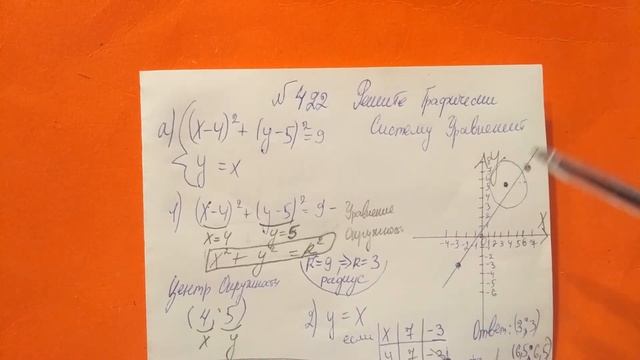 № 422 Решите Графически
Систему Уравнений
а) { (x-4)² + (y-5)² = 9
y = x
1) (x-4)² + (y-5)² = 9 - Уравнение
Окружности
x=4 y=5
x² + y² = R²
R=9, => R=3
радиус
Центр Окружности
(4; 5)
x y
2) y = x
если
x | 7 | -3
y | 7 | -3
Ответ: (3; 3)
(6,5; 6,5)
y
x
-4 -3 -2 -1 1 2 3 4 5 6 7